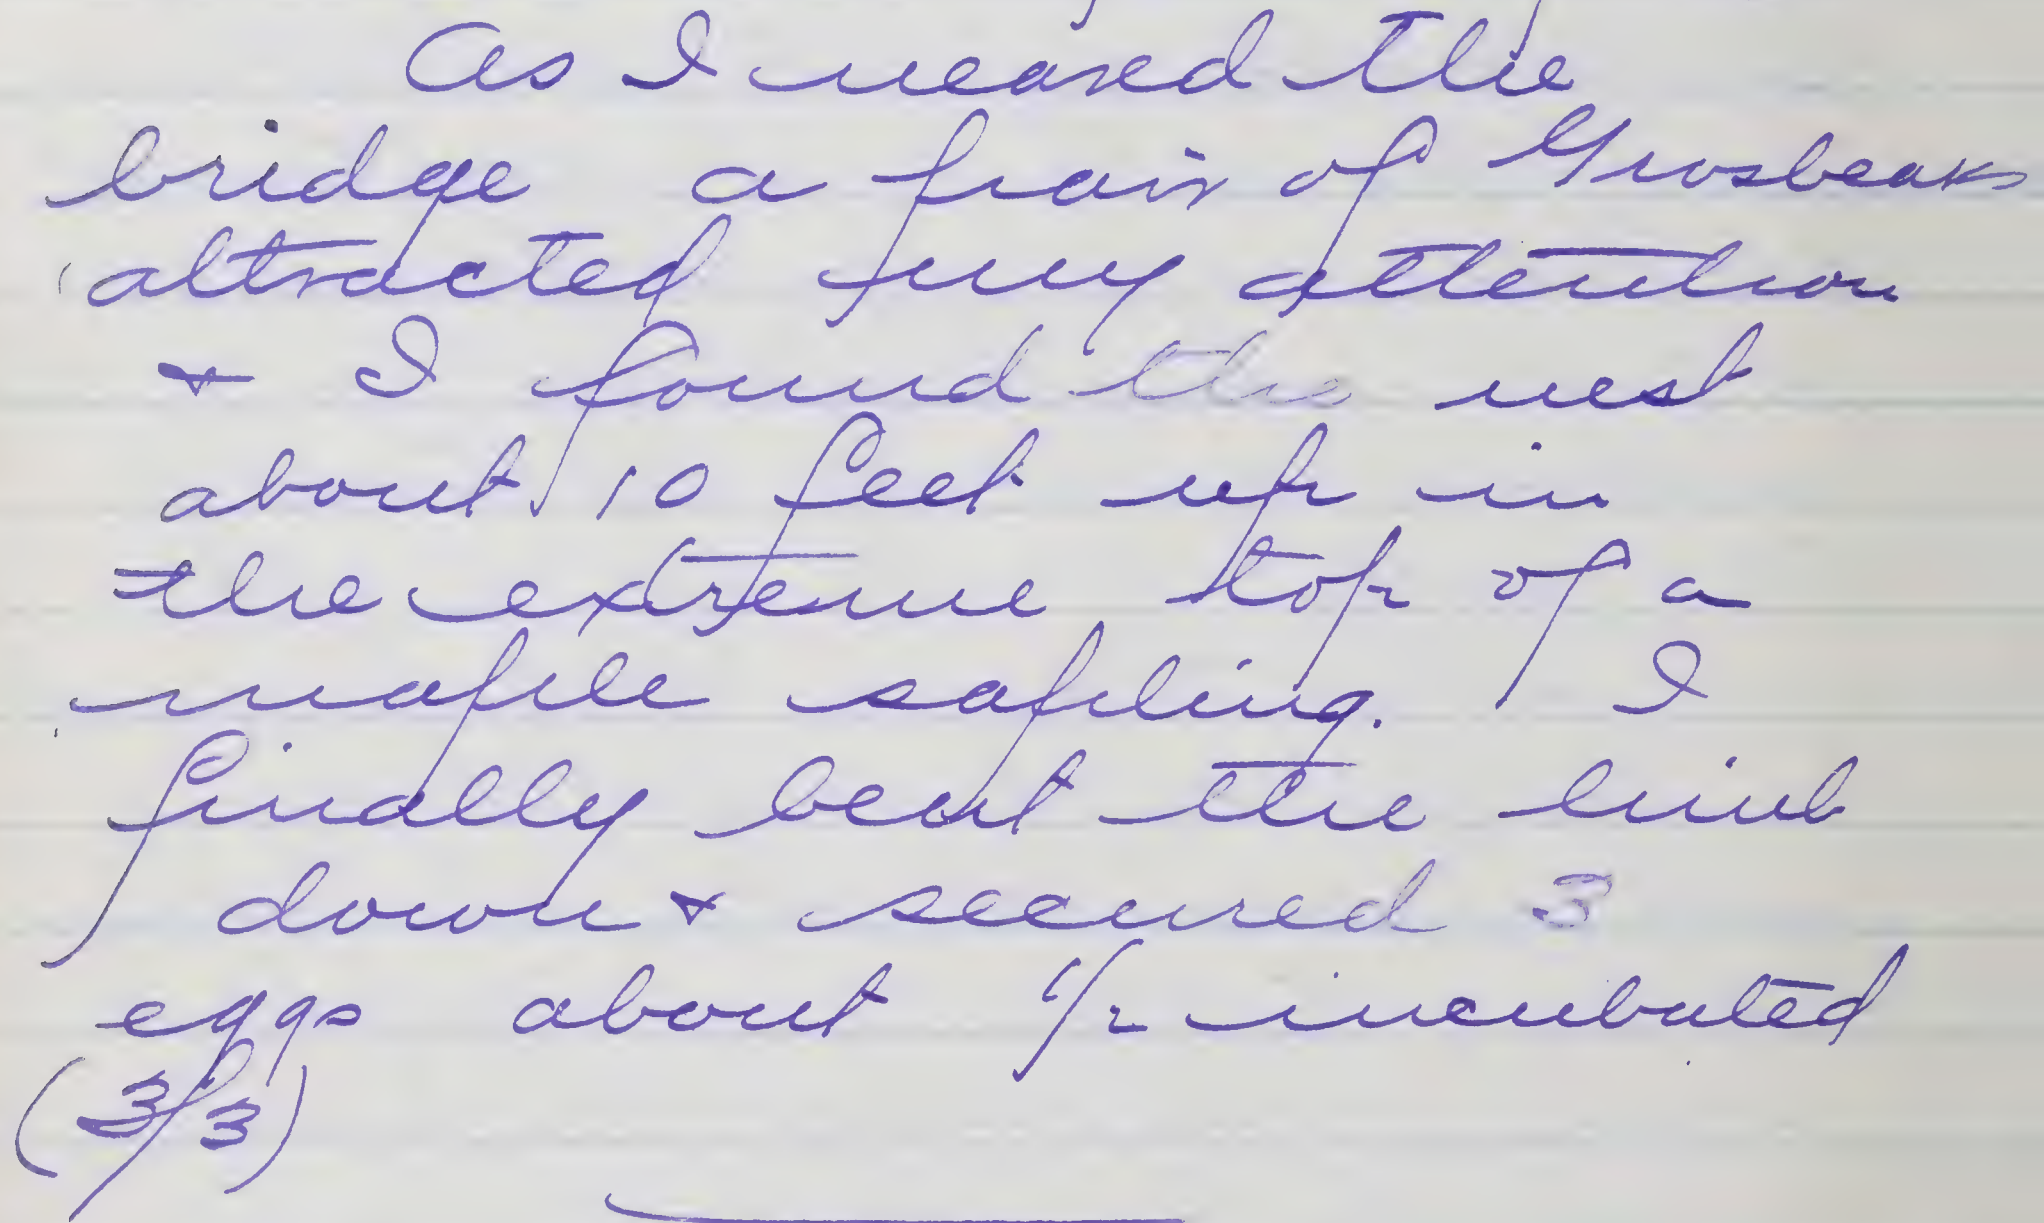 As I neared the
bridge a pair of Grosbeaks
attracted my attention
& I found the nest
about 10 feet up in
the extreme top of a
maple sapling. I
finally bent the limb
down & secured 3
eggs about 1/2 incubated
(3/3)